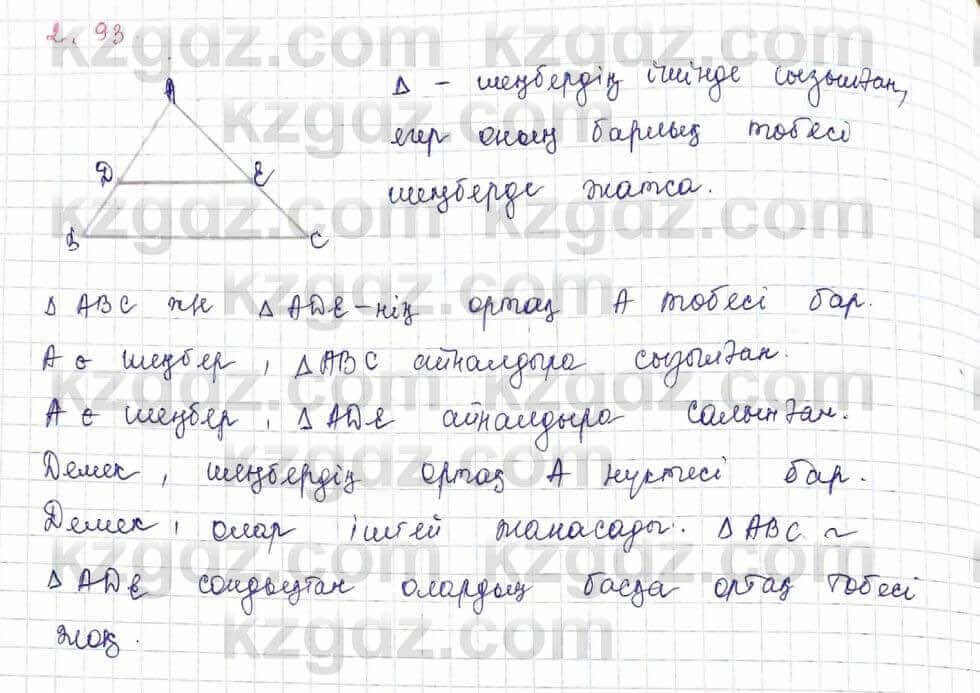 2.93
kzgdz.com
А
Д
Е
В
С
Δ - шеңбердің ішінде сызылған,
егер оның барлық төбесі
шеңберде жатса.
Δ АВС және Δ АДЕ-нің ортақ А төбесі бар.
А ∈ шеңбер, Δ АВС айналдыра сызылған.
А ∈ шеңбер, Δ АДЕ айналдыра салынған.
Демек, шеңбердің ортақ А нүктесі бар.
Демек, олар іштей жанасады. Δ АВС ~
Δ АДЕ сондықтан олардың басқа ортақ төбесі
жоқ.